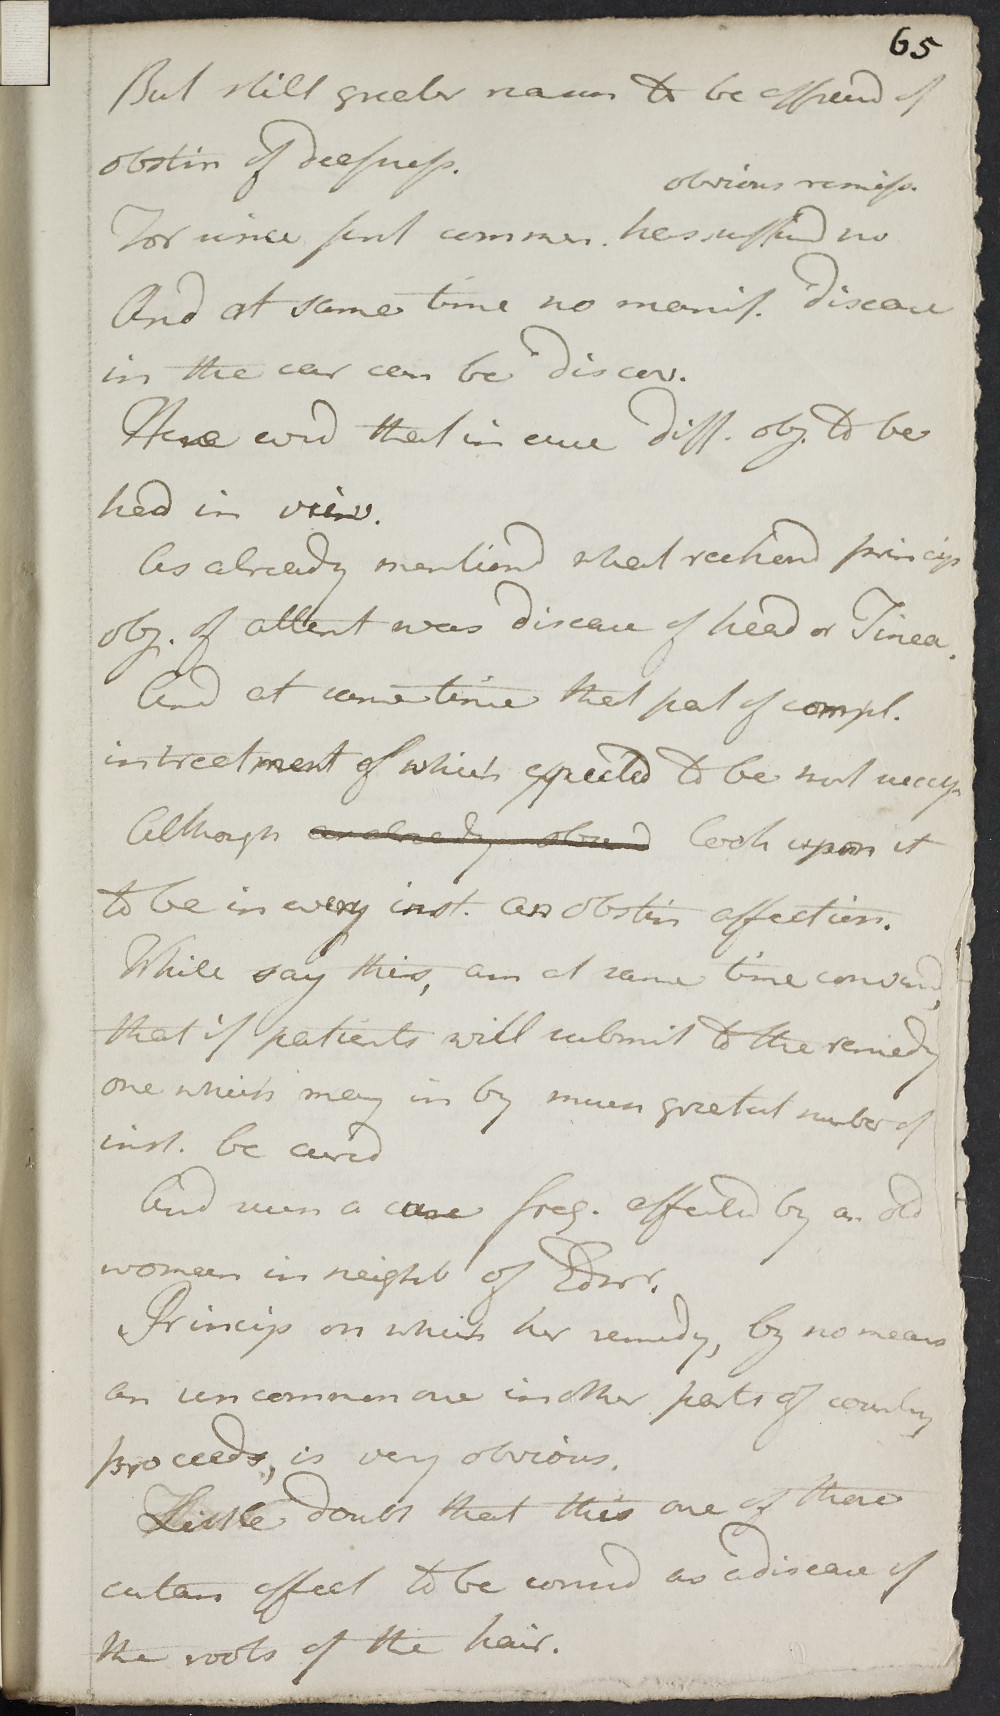 65
But still greater reason to be affraid of
obstin of deafness.
obvious remiss.
For since first commen. has suffered no
And at same time no manif. disease
in the ear can be discov.
Here consd that in cure diff. obj. to be
had in view.
As already mentiond what reckond princip
obj. of attent was disease of head or Tinea.
And at same time that part of compl.
in treatment of which expected to be most
Although as already obsvd look upon it
to be in every inst. an obstin affection.
While say this, am at same time convincd,
that if patients will submit to the remedy
one which may in by much greatest number of
inst. be cured
And such a cure freq. effected by an old
woman in neighb of Edinr.
Princip on which her remedy, by no means
an uncommon one in other parts of country
proceeds, is very obvious.
Little doubt that this one of those
cutan affect to be consid as a disease of
the roots of the hair.